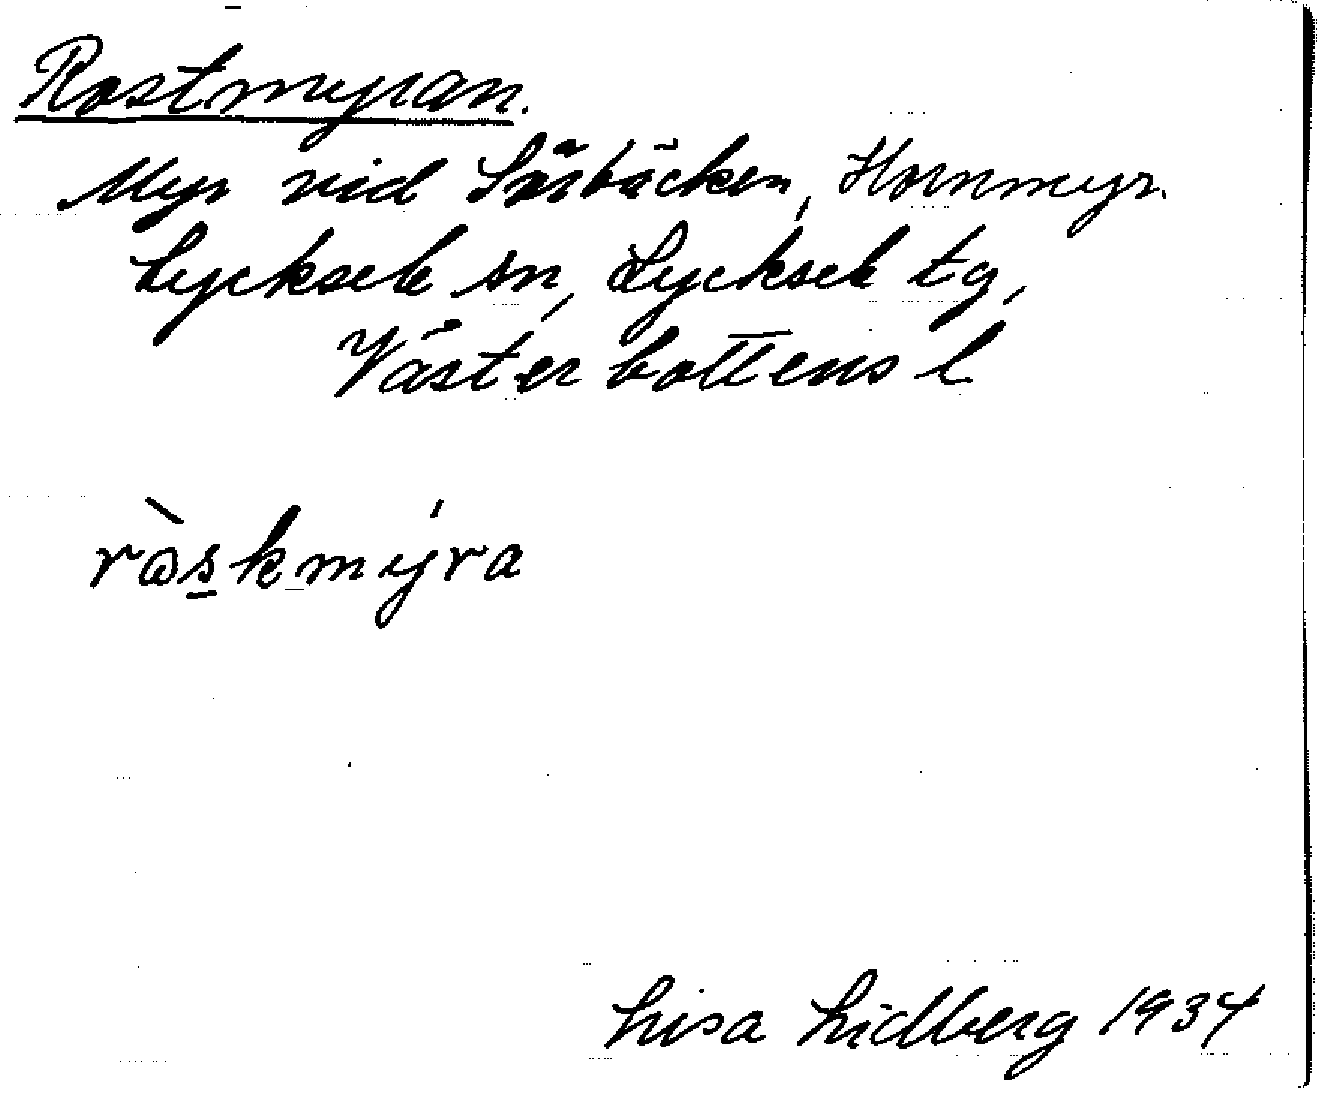 Rostmyran.
Myr vid Sörbäcken, Hornmyr.
Lycksele sn, Lycksele tg,
Västerbottens l
ròskmýra
Lisa Lidberg 1934